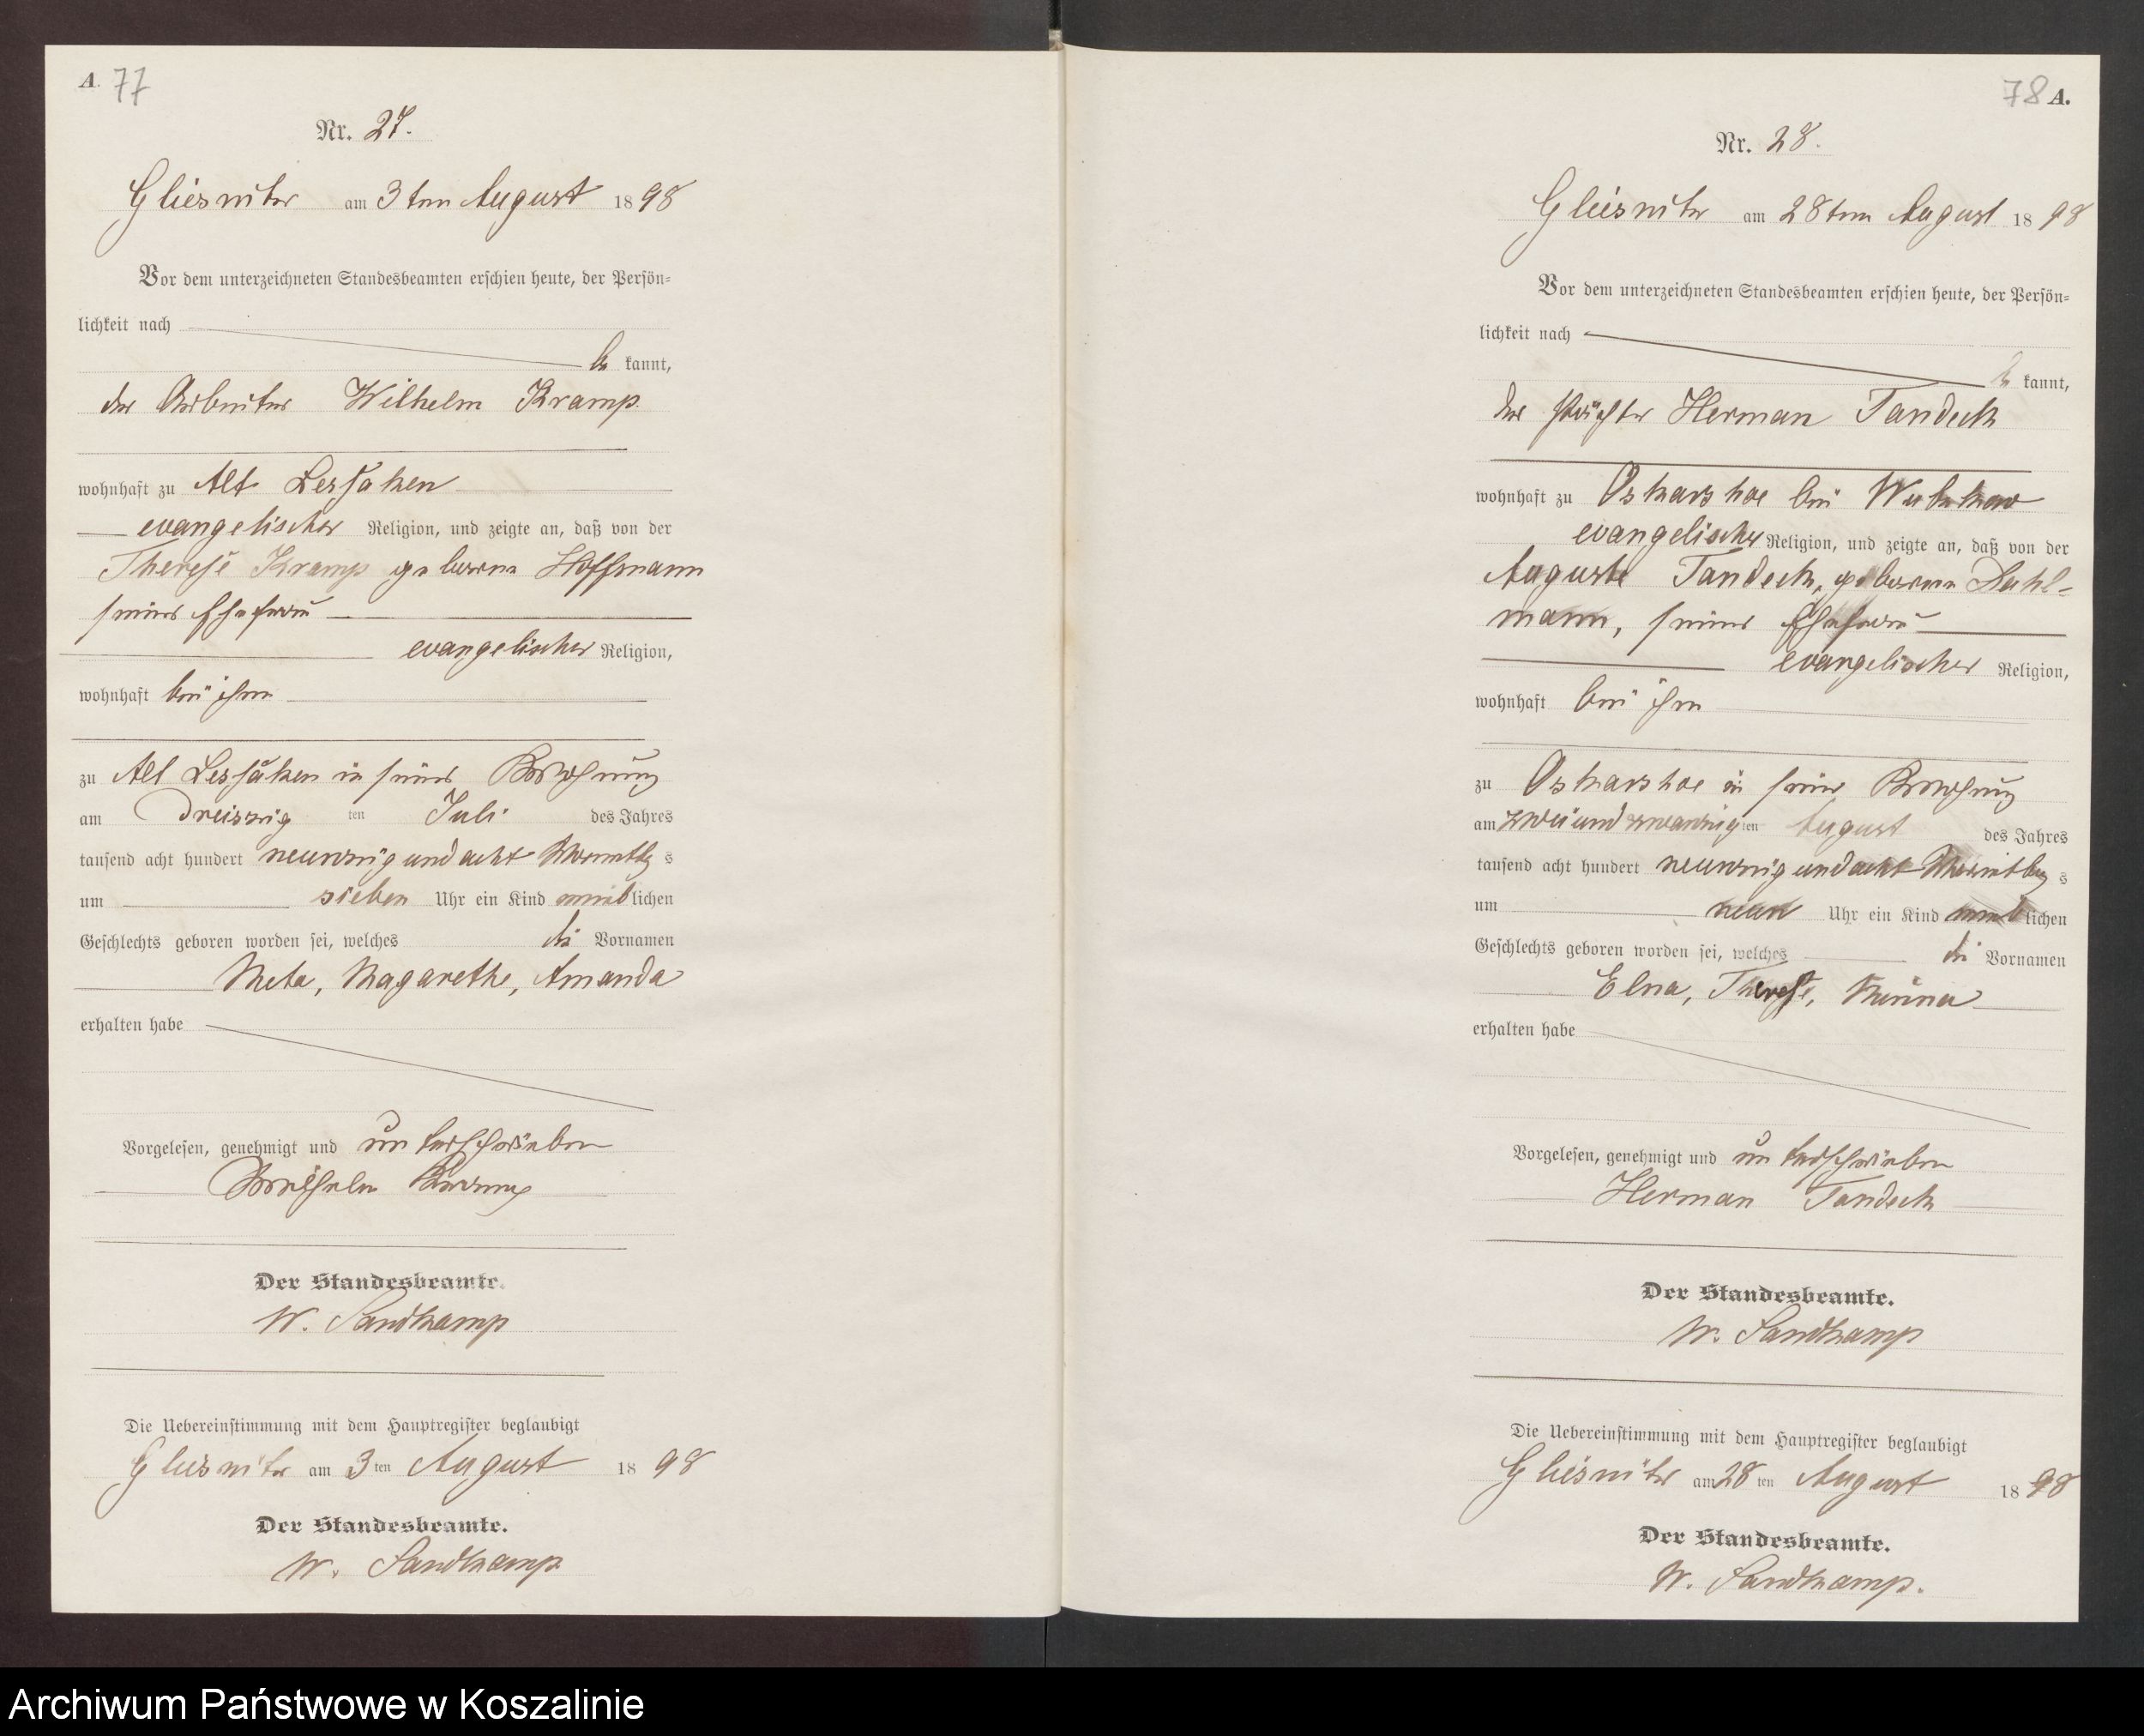 A. 77
Nr. 27.
Gliesnitz am 3ten August 1898
Vor dem unterzeichneten Standesbeamten erschien heute, der Persön-
lichkeit nach
be kannt,
der Arbeiter Wilhelm Kramp
wohnhaft zu Alt Lessaken
evangelischer Religion, und zeigte an, daß von der
Therese Kramp geborne Hoffmann
seiner Ehefrau
evangelischer Religion,
wohnhaft bei ihm
zu Alt Lessaken in seiner Wohnung
am Dreiszig ten Juli des Jahres
tausend acht hundert neunzig und acht Vormittags
um sieben Uhr ein Kind weiblichen
Geschlechts geboren worden sei, welches die Vornamen
Meta, Magarethe, Amanda
erhalten habe
Vorgelesen, genehmigt und unterschrieben
Wilhelm Kramp
Der Standesbeamte.
W. Sandkamp
Die Uebereinstimmung mit dem Hauptregister beglaubigt
Gliesnitz am 3ten August 1898
Der Standesbeamte.
W. Sandkamp
78 A.
Nr. 28.
Gliesnitz am 28ten August 1898
Vor dem unterzeichneten Standesbeamten erschien heute, der Persön-
lichkeit nach
be kannt,
der Pächter Herman Tandeck
wohnhaft zu Oskarshoe bei
evangelischer Religion, und zeigte an, daß von der
Auguste Tandeck, geborne Dahl-
mann, seiner Ehefrau
evangelischer Religion,
wohnhaft bei ihm
zu Oskarshoe in seiner Wohnung
am zwei und zwanzigten August des Jahres
tausend acht hundert neunzig und acht Vormittags
um neun Uhr ein Kind weiblichen
Geschlechts geboren worden sei, welches die Vornamen
Elna, Therese, Minna
erhalten habe
Vorgelesen, genehmigt und unterschrieben
Herman Tandeck
Der Standesbeamte.
W. Sandkamp
Die Uebereinstimmung mit dem Hauptregister beglaubigt
Gliesnitz am 28ten August 1898
Der Standesbeamte.
W. Sandkamp.
Archiwum Państwowe w Koszalinie